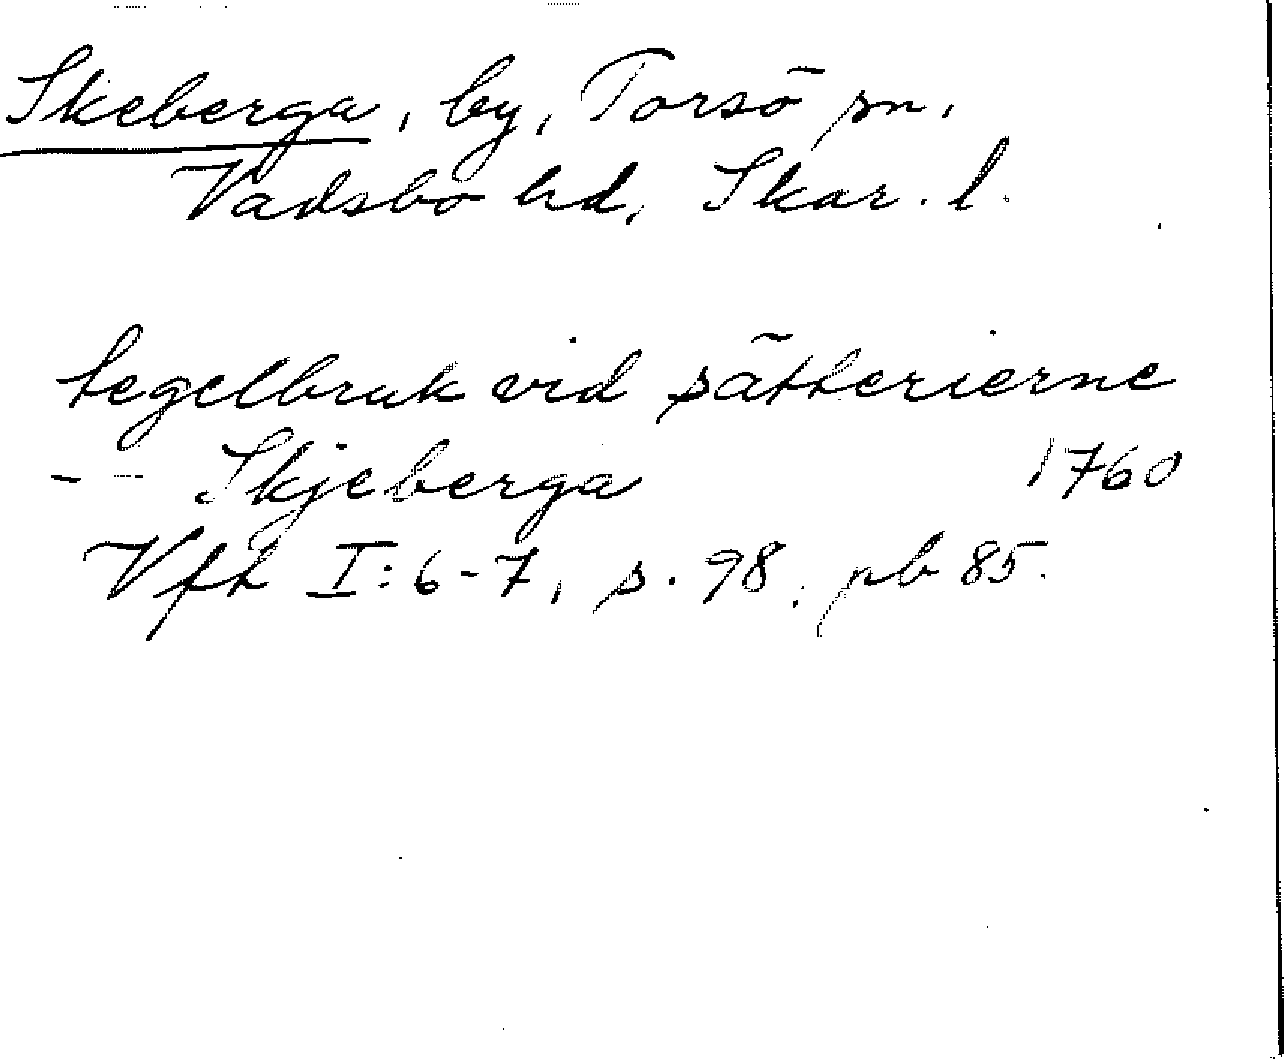 Skeberga, by, Torsö sn,
Vadsbo hd, Skar. l.
tegelbruk vid sätterierne
- -- Skjeberga 1760
Vfh I:6-7, s. 98, pb 85.